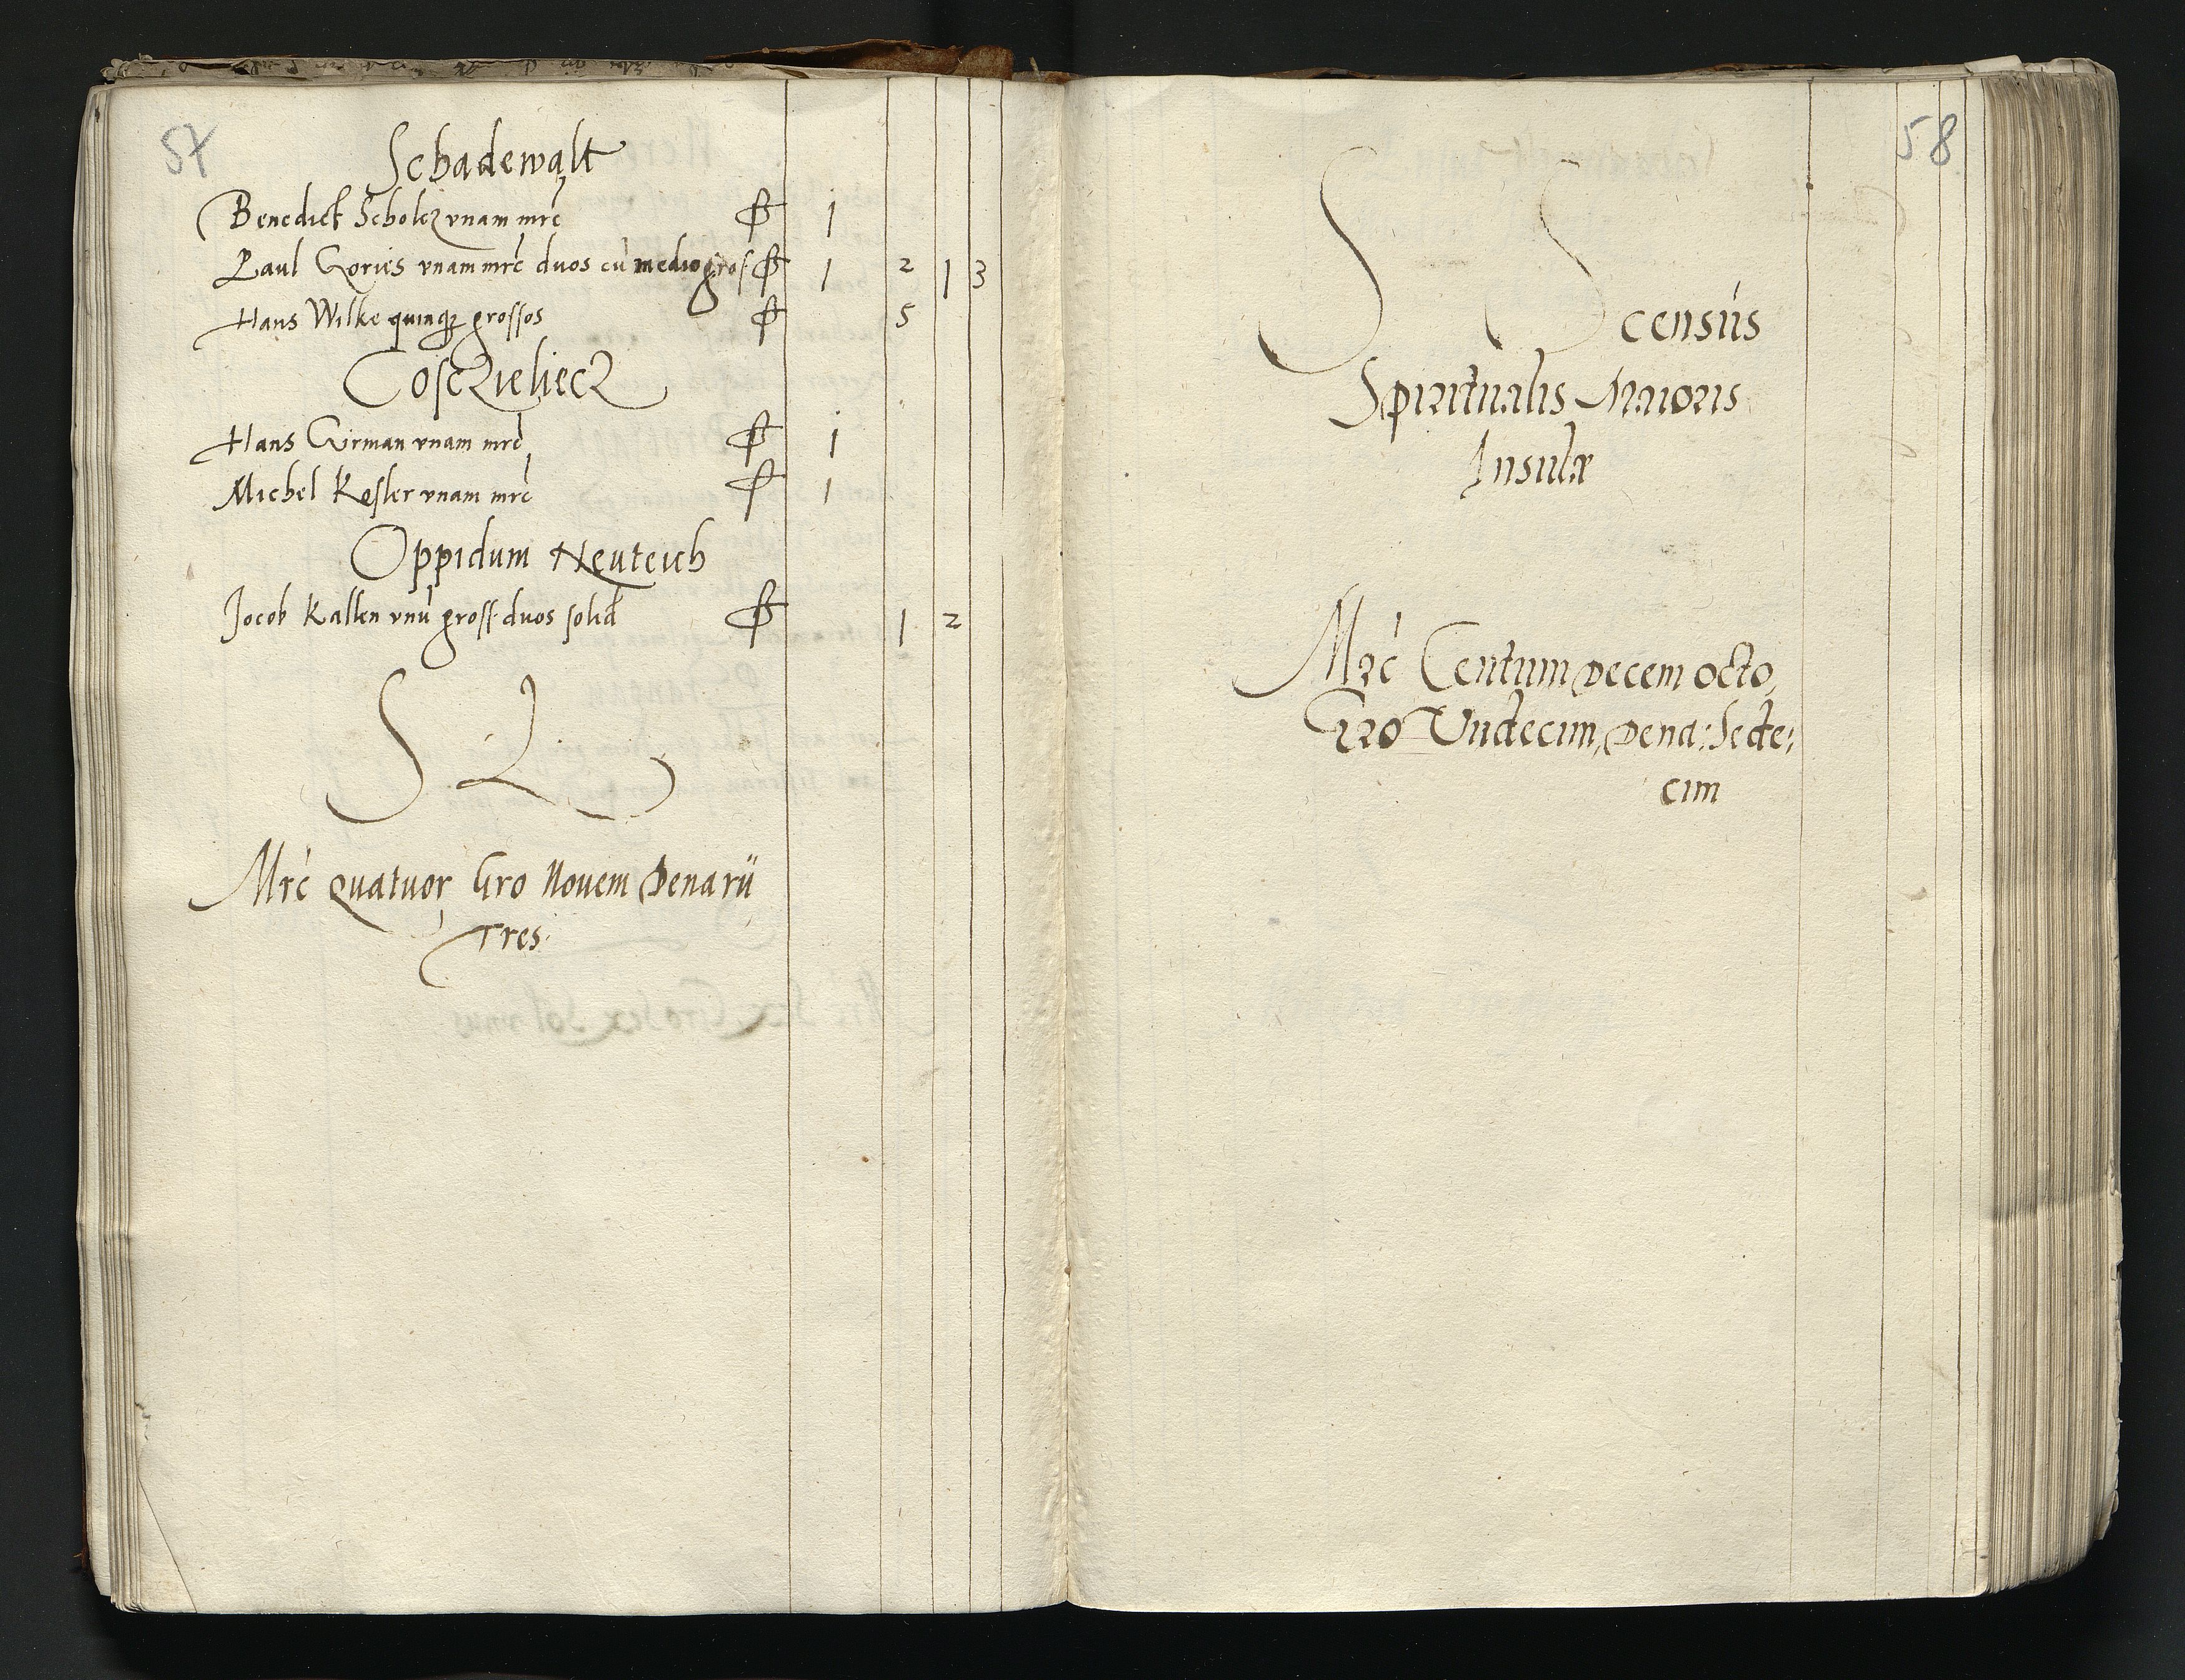 57
Schadewalt
Benedict Scholcz vnam mrc ꝑ 1
Paul Gories vnam mrc duos cũ medio gros ꝑ 1 2 1 3
Hans Wilke quinqz grossos ꝑ 5
Cosczieliecz
Hans Girman vnam mrc ꝑ 1
Michel Kesler vnam mrc ꝑ 1
Oppidum Neuteich
Jocob Kallen vnũ gross. duos solid ꝑ 1 2
S L
Mrc quatuor Gro Nouem Denarii
Tres.
58
S S census
Spiritualis Maioris
Insulæ
Mrc Centum decem octo,
Gro Vndecim, Dena: Sede:
cim